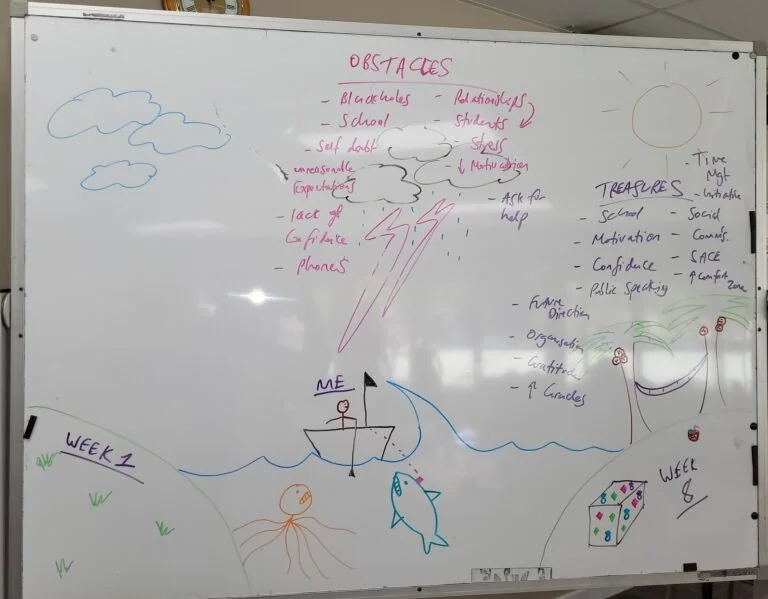 OBSTACLES
- Blackholes
- School
- Self doubt
unreasonable
Expectations
- lack of
Confidence
- Phones
- Relationships
- Students
- Stress
- ↓ Motivation
- Ask for
help
TREASURES
- School
- Motivation
- Confidence
- Public Speaking
- Time
Mgt
- Initiative
- Social
- Comms.
- SACE
- ↑ Comfort
Zone
- Future
Direction
- Organisation
- Gratitude
- ↑ Grades
ME
WEEK 1
WEEK
8